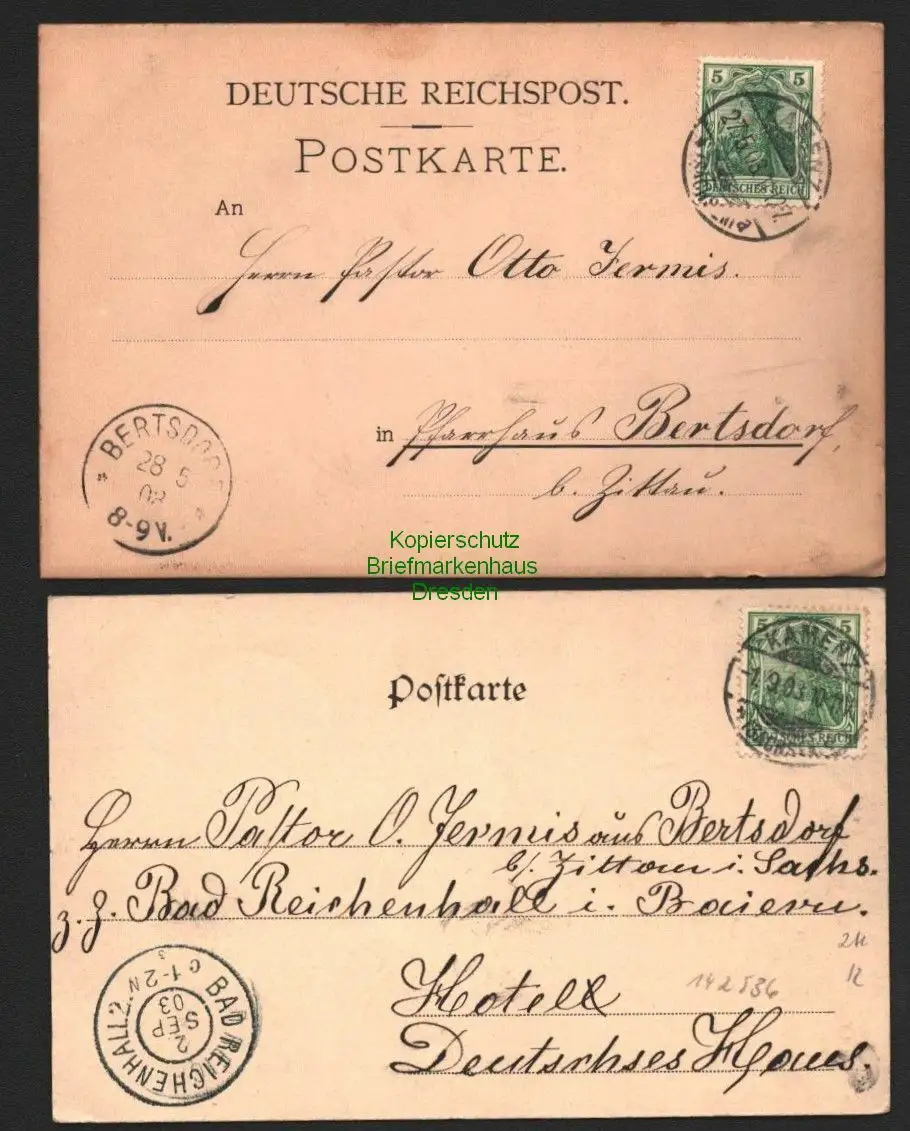 DEUTSCHE REICHSPOST.
POSTKARTE.
5 5
DEUTSCHES REICH
27 5
An
Herrn Pastor Otto Jermis.
in Pfarrhaus Bertsdorf,
b. Zittau.
BERTSDORF
28 5
03
8-9 V.
Kopierschutz
Briefmarkenhaus
Dresden
Postkarte
5 5
KAMENZ
9.03
REICH
Herrn Pastor O. Jermis aus Bertsdorf
b/. Zittau i. Sachs.
z. Z. Bad Reichenhall i. Baiern.
Hotell
Deutsches Haus.
142536
BAD REICHENHALL 2.
2
SEP
03
1-2 N